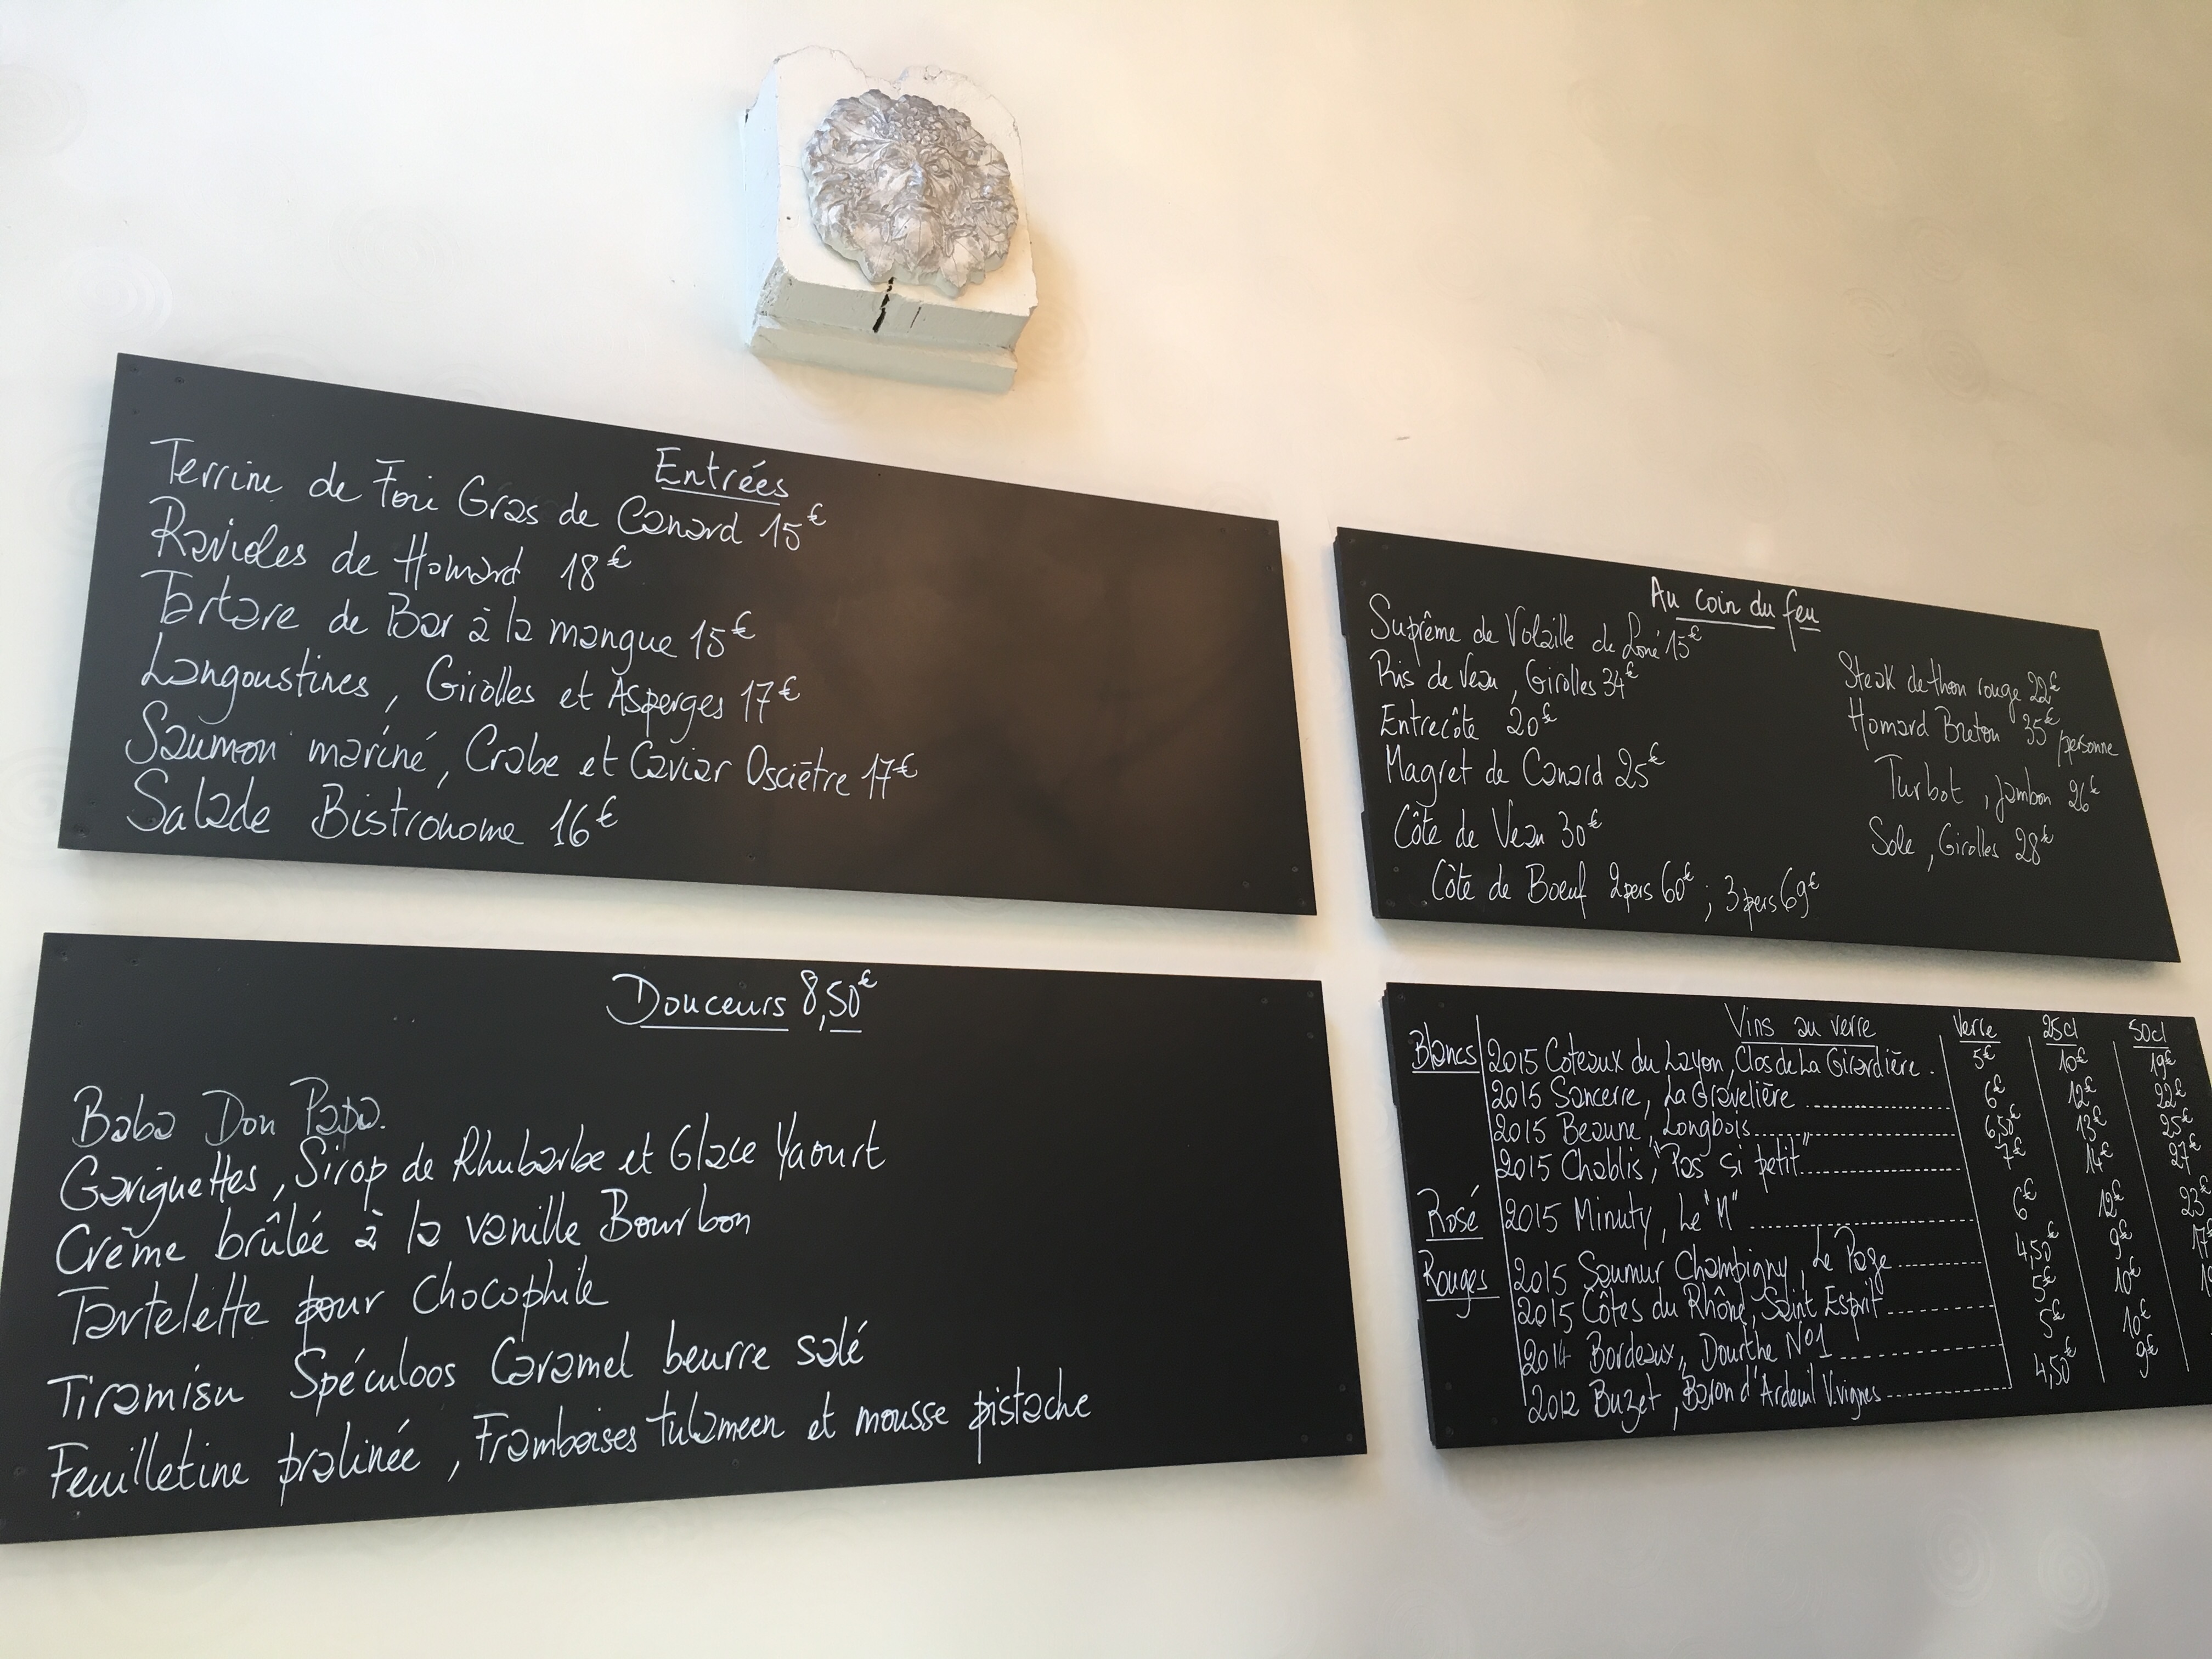 Entrées
Terrine de Foie Gras de Canard 15€
Ravioles de Homard 18€
Tartare de Bar à la mangue 15€
Langoustines, Girolles et Asperges 17€
Saumon mariné, Crabe et Caviar Osciètre 17€
Salade Bistronome 16€
Au coin du feu
Suprême de Volaille de Loué 15€
Ris de Veau, Girolles 34€
Entrecôte 20€
Magret de Canard 25€
Côte de Veau 30€
Côte de Boeuf 2pers 60€ ; 3pers 69€
Steak de thon rouge 22€
Homard Breton 35€ /personne
Turbot, jambon 26€
Sole, Girolles 28€
Douceurs 8,50€
Baba Don Papa.
Gariguettes, Sirop de Rhubarbe et Glace Yaourt
Crème brûlée à la vanille Bourbon
Tartelette pour Chocophile
Tiramisu Spéculoos Caramel beurre salé
Feuilletine pralinée, Framboises tulameen et mousse pistache
Vins au verre Verre 25cl 50cl
Blancs 2015 Coteaux du Layon, Clos de La Girardière. 5€ 10€ 19€
2015 Sancerre, La Gravelière 6€ 12€ 22€
2015 Beaune, Longbois 6,50€ 13€ 25€
2015 Chablis, "Pas si petit" 7€ 14€ 27€
Rosé 2015 Minuty, Le "M" 6€ 12€ 23€
Rouges 2015 Saumur Champigny, Le Page 4,50€ 9€ 17€
2015 Côtes du Rhône, Saint Esprit 5€ 10€
2014 Bordeaux, Dourthe N°1 5€ 10€
2012 Buzet, Baron d'Ardeuil V.vignes 4,50€ 9€